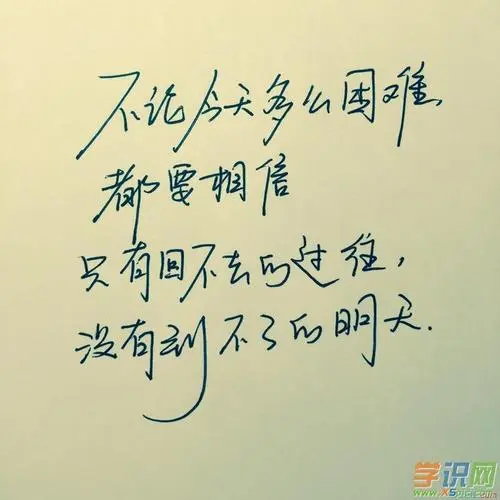 不论今天多么困难,
都要相信
只有回不去的过往,
没有到不了的明天.
学识网
www.xspic.com